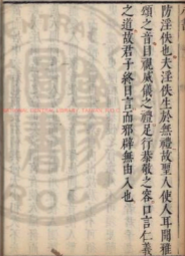 防淫佚也夫淫佚生於無禮故聖人使人耳聞雅
頌之音目視威儀之禮足行恭敬之容口言仁義
之道故君子終日言而邪辟無由入也